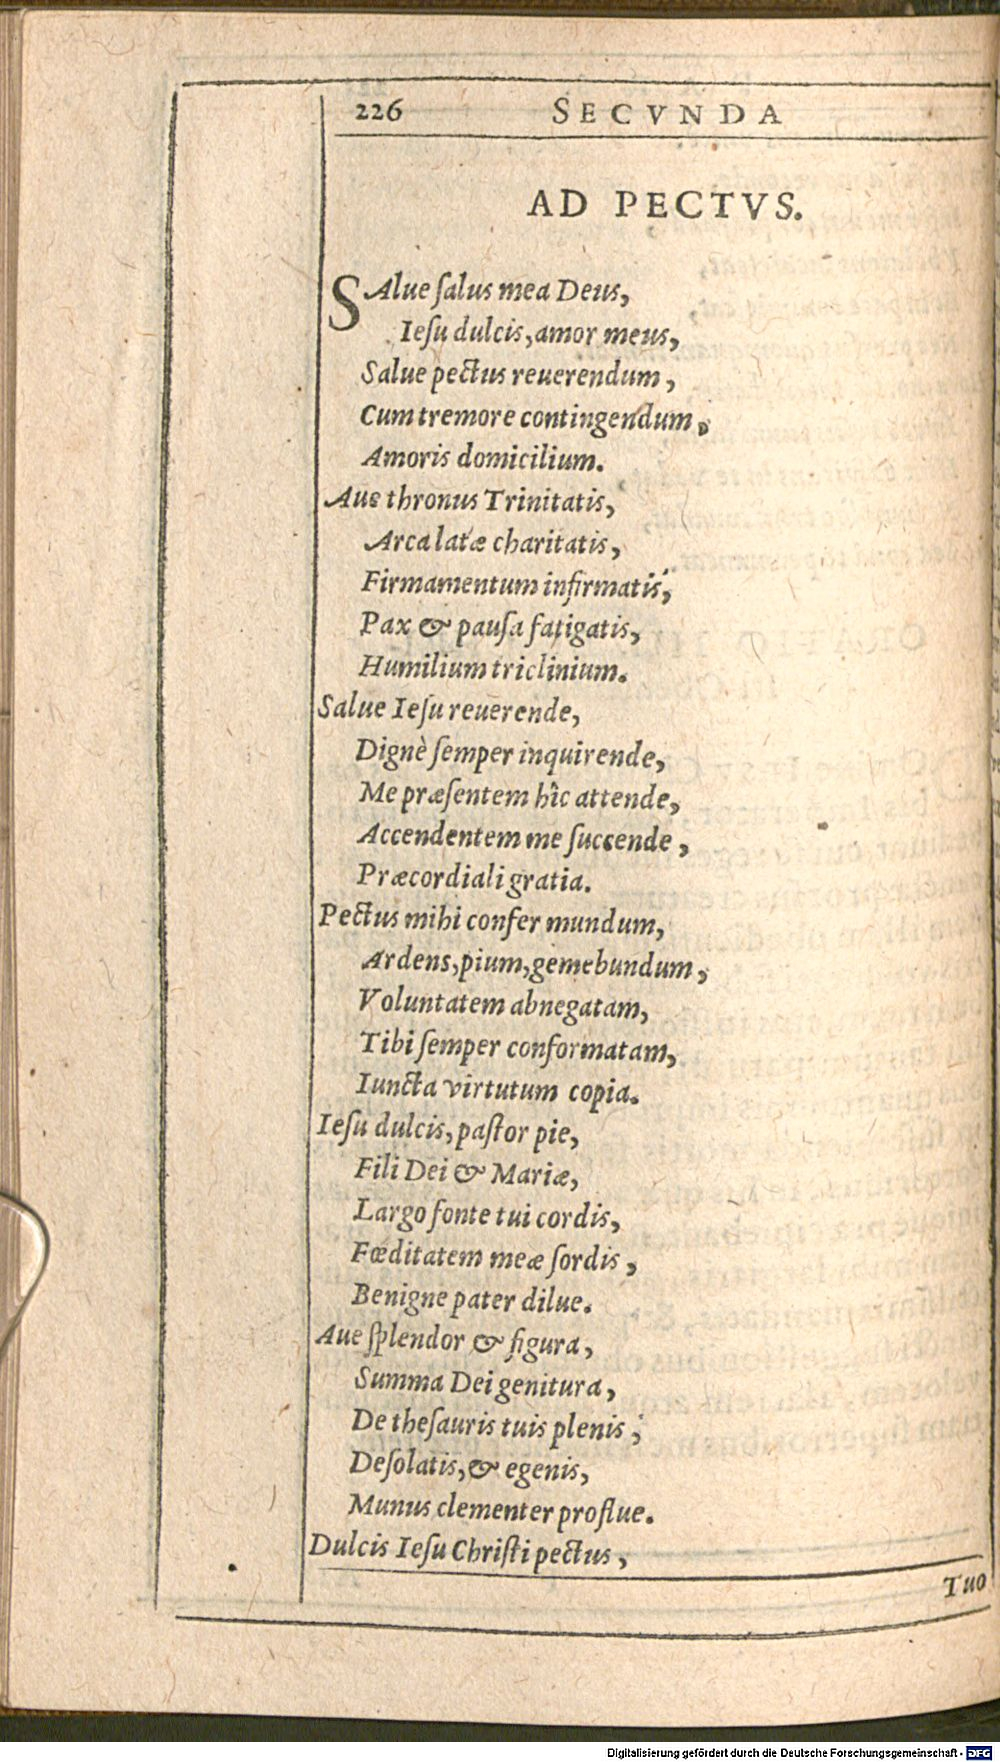 226 SECVNDA
AD PECTVS.
SAlue ſalus mea Deus,
Ieſu dulcis, amor meus,
Salue pectus reuerendum,
Cum tremore contingendum,
Amoris domicilium.
Aue thronus Trinitatis,
Arca latæ charitatis,
Firmamentum infirmatis,
Pax & pauſa fatigatis,
Humilium triclinium.
Salue Ieſu reuerende,
Dignè ſemper inquirende,
Me præſentem hîc attende,
Accendentem me ſuccende,
Præcordiali gratia.
Pectus mihi confer mundum,
Ardens, pium, gemebundum,
Voluntatem abnegatam,
Tibi ſemper conformatam,
Iuncta virtutum copia.
Ieſu dulcis, paſtor pie,
Fili Dei & Mariæ,
Largo fonte tui cordis,
Fœditatem meæ ſordis,
Benigne pater dilue.
Aue ſplendor & figura,
Summa Dei genitura,
De theſauris tuis plenis,
Deſolatis, & egenis,
Munus clementer proflue.
Dulcis Ieſu Chriſti pectus,
Tuo
Digitalisierung gefördert durch die Deutsche Forschungsgemeinschaft - DFG